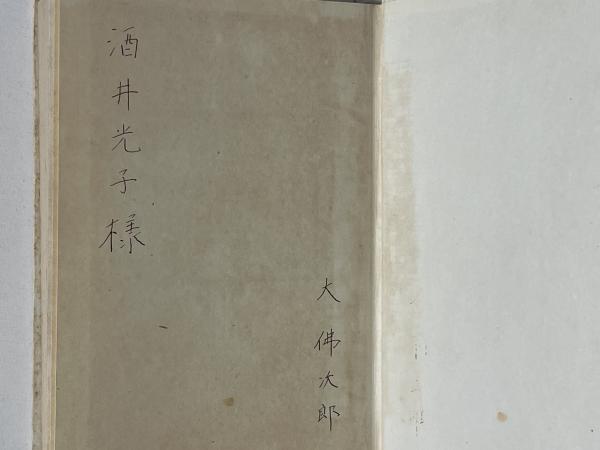 酒井光子様
大佛次郎